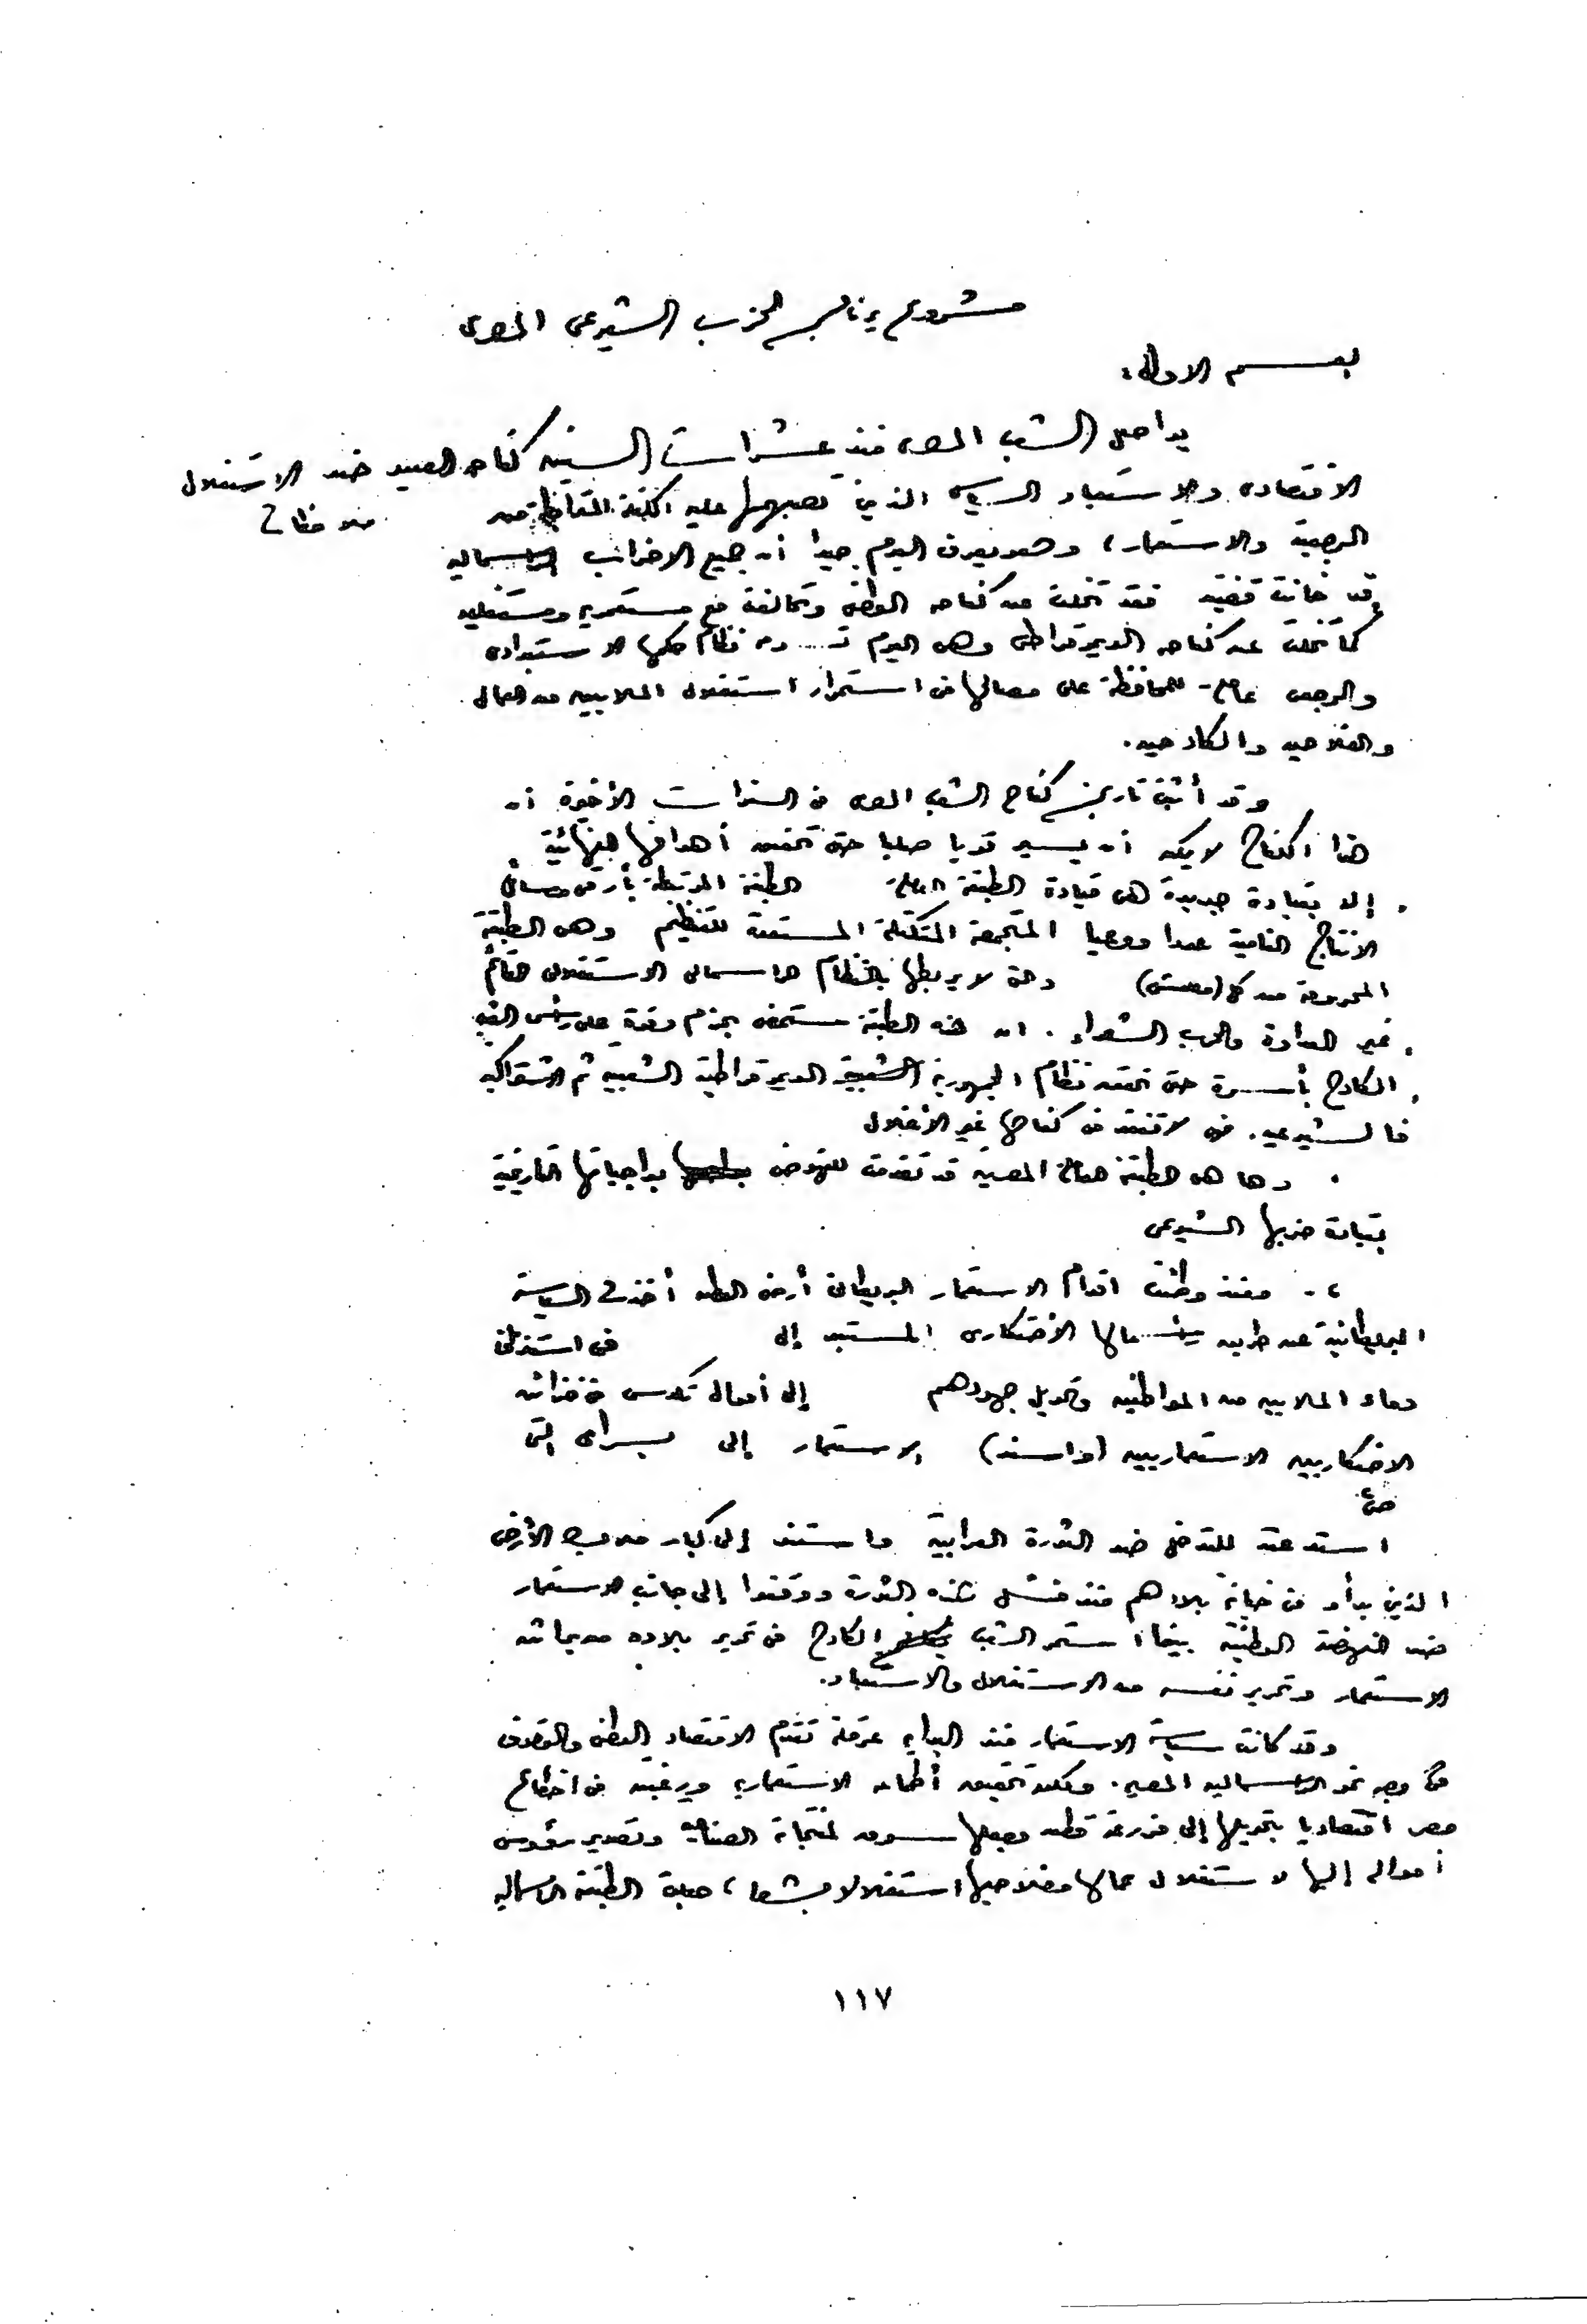 مشروع برنامج الحزب الشيوعى المصرى
القسم الاول:
يواصل الشعب المصرى منذ عشرات السنين كفاحه العنيد ضد الاستغلال
الاقتصادى والاستعباد السياسى الذين تصبهما عليه الكتلة المتحالفة من
الرجعية والاستعمار، وهو يعرف اليوم جيدا أن جميع الاحزاب الرأسمالية
قد خانت قضيته فقد تخلت عن كفاحه الوطنى وتحالفت مع مستعمريه ومستغليه
كما تخلت عن كفاحه الديمقراطى وهى اليوم ت.... نظام حكمها الاستبدادى
والرجعى للمحافظة على مصالحها فى استمرار استغلال الملايين من العمال
والفلاحين والكادحين.
وقد أثبت تاريخ كفاح الشعب المصرى فى السنوات الأخيرة أن
هذا الكفاح لا يمكن أن يسير قويا صلبا حتى تحقيق أهدافها النهائية
إلا بقيادة جديدة هى قيادة الطبقة العاملة الطبقة المرتبطة بأرقى وسائل
الانتاج النامية عددا ووعيا المتجمعة المتكتلة المستعدة للتنظيم وهى الطبقة
المحرومة من كل ( ) والتى لا يربطها بالنظام الرأسمالى الاستغلالى القائم
غير العداوة والحرب الشعواء. ان هذه الطبقة ستمضى بحزم وقوة على رأس الشعب
الكادح بأسره حتى تحقيق نظام الجمهورية الشعبية الديمقراطية الشعبية ثم الاشتراكية
فالشيوعية. فهى لا تفقد فى كفاحها غير الأغلال
وها هى الطبقة العاملة المصرية قد تقدمت للنهوض بواجباتها التاريخية
بقيادة حزبها الشيوعى
٢ - منذ وطئت اقدام الاستعمار البريطانى أرض الوطن أخذت السياسة
البريطانية عن طريق رأسمالها الاحتكارى المستبد إلى فى استنزاف
دماء الملايين من المواطنين وتحويل جهودهم إلى أموال تكدس فى خزائن
الاحتكاريين الاستعماريين (واستند) الاستعمار إلى سراى التى
استدعته للتدخل ضد الثورة العرابية واستند إلى كبار ملاك الأرض
الذين بدأو فى خيانة بلادهم منذ فشل هذه الثورة ووقفوا إلى جانب الاستعمار
ضد النهضة الوطنية بينما استمر الشعب الكادح فى تحرير بلاده من براثن
الاستعمار وتحرير نفسه من الاستغلال والاستعباد.
وقد كانت سياسة الاستعمار منذ البداية عرقلة تقدم الاقتصاد الوطنى والوقوف
فى وجه نمو الرأسمالية المصرية. ولكن تحقيق أطماعه الاستعمارية ورغبته فى اخضاع
مصر اقتصاديا بتحويلها إلى مزرعة قطن وجعلها سوق لمنتجاته الصناعية وتصدير رؤوس
أمواله إليها لاستغلال عمالها وفلاحيها استغلالا بشعا، جعلت الطبقة الرأسمالية
١١٧